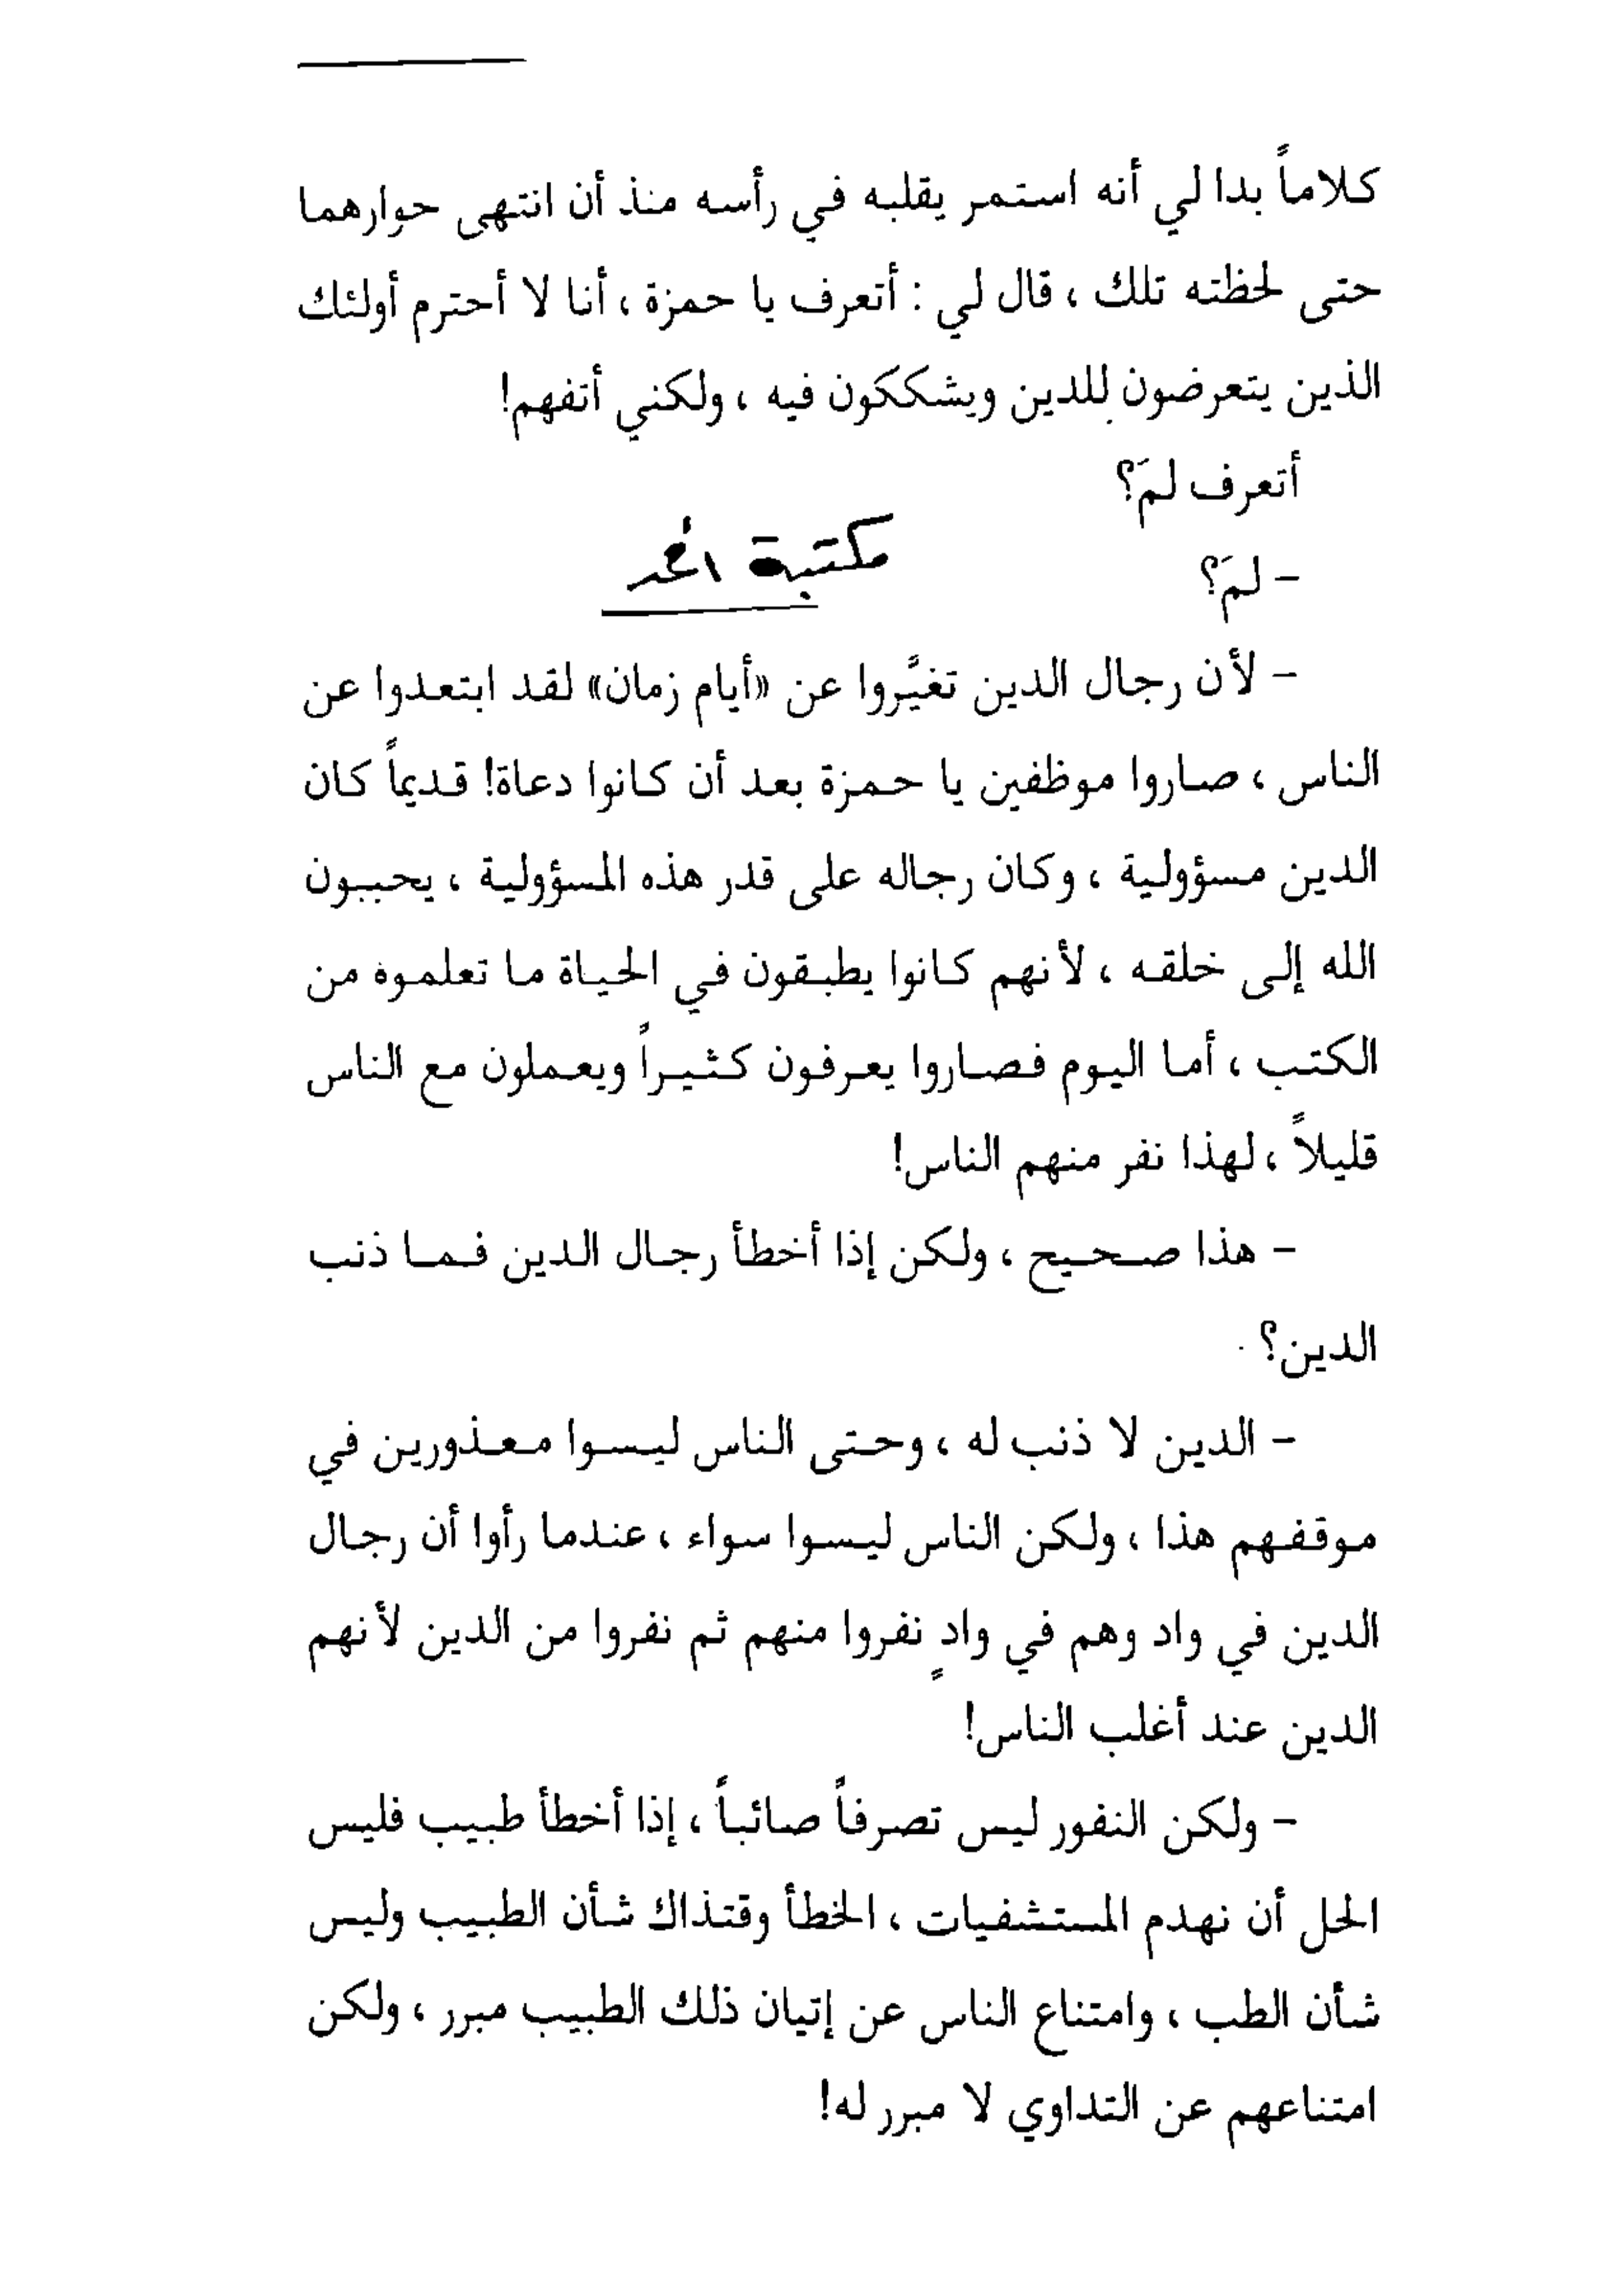 كلاماً بدا لي أنه استمر يقلبه في رأسه منذ أن انتهى حوارهما
حتى لحظته تلك ، قال لي : أتعرف يا حمزة ، أنا لا أحترم أولئك
الذين يتعرضون للدين ويشككون فيه ، ولكني أتفهم!
أتعرف لمَ؟
مكتبة
- لمَ؟
- لأن رجال الدين تغيَّروا عن «أيام زمان» لقد ابتعدوا عن
الناس ، صاروا موظفين يا حمزة بعد أن كانوا دعاة! قديماً كان
الدين مسؤولية ، وكان رجاله على قدر هذه المسؤولية ، يحببون
الله إلى خلقه ، لأنهم كانوا يطبقون في الحياة ما تعلموه من
الكتب ، أما اليوم فصاروا يعرفون كثيراً ويعملون مع الناس
قليلاً ، لهذا نفر منهم الناس!
- هذا صحيح ، ولكن إذا أخطأ رجال الدين فما ذنب
الدين؟
- الدين لا ذنب له ، وحتى الناس ليسوا معذورين في
موقفهم هذا ، ولكن الناس ليسوا سواء ، عندما رأوا أن رجال
الدين في واد وهم في وادٍ نفروا منهم ثم نفروا من الدين لأنهم
الدين عند أغلب الناس!
- ولكن النفور ليس تصرفاً صائباً ، إذا أخطأ طبيب فليس
الحل أن نهدم المستشفيات ، الخطأ وقتذاك شأن الطبيب وليس
شأن الطب ، وامتناع الناس عن إتيان ذلك الطبيب مبرر ، ولكن
امتناعهم عن التداوي لا مبرر له!